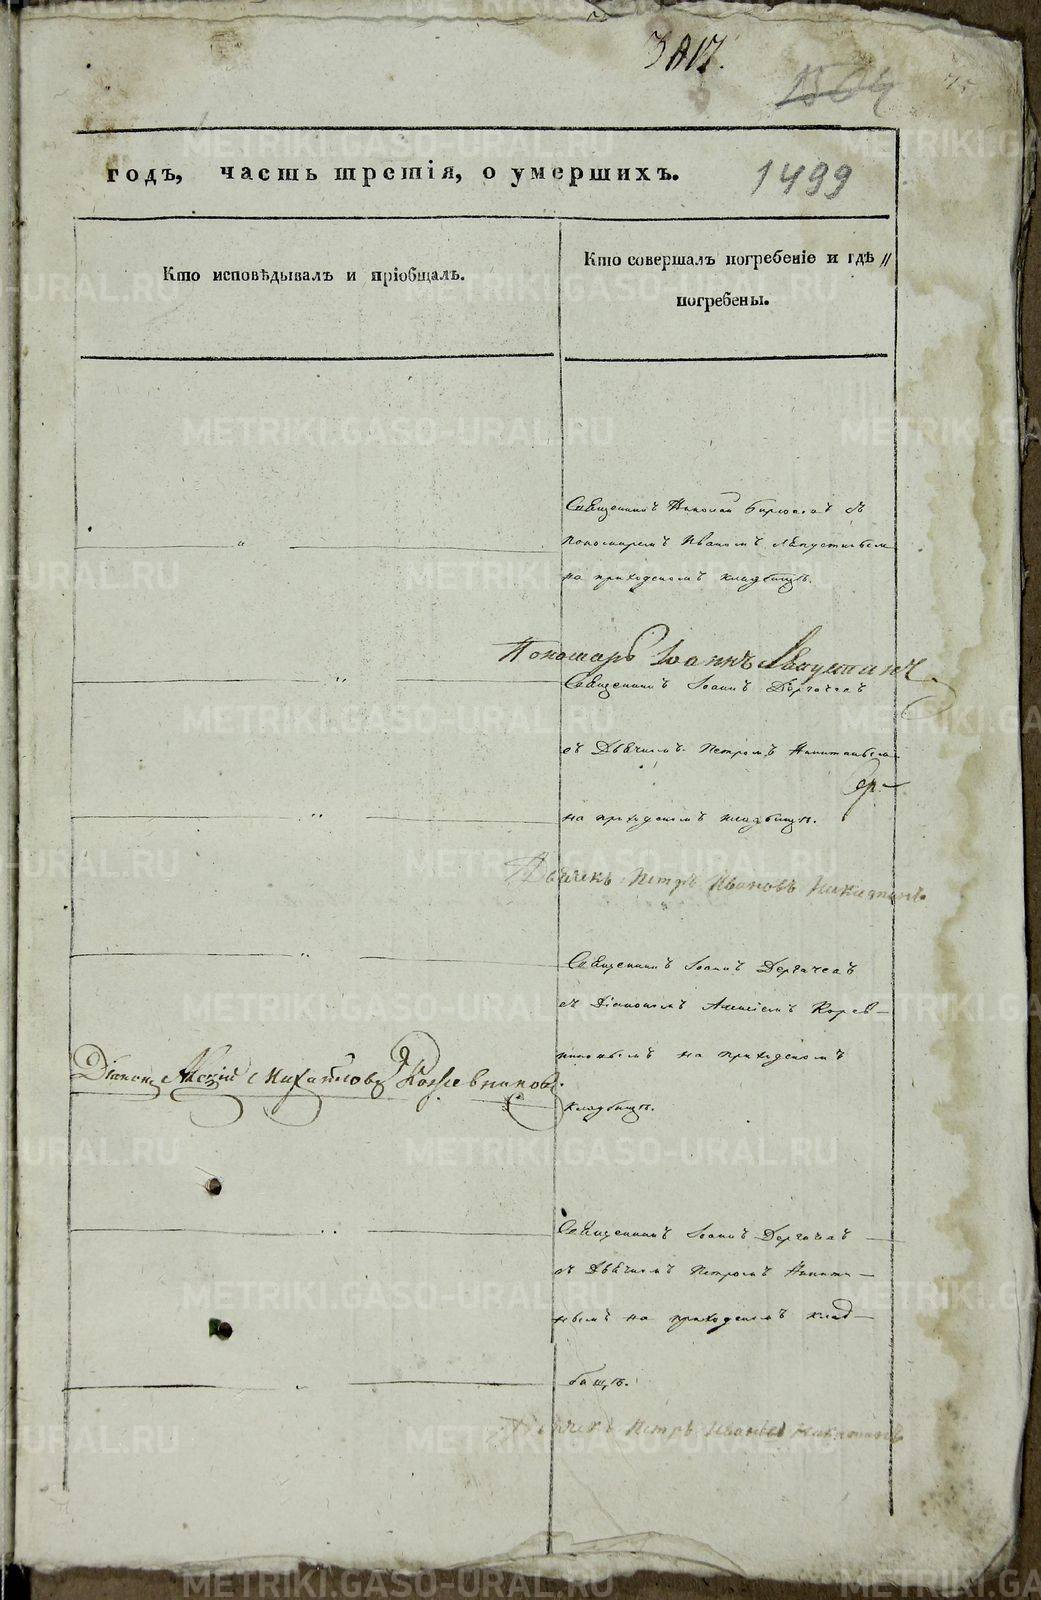 3017.
1504
1499
годъ, часть третія, о умершихъ.
Кто исповѣдывалъ и пріобщалъ.
Кто совершалъ погребеніе и гдѣ
погребены.
Священникъ Николай съ
Пономаремъ Иваномъ
на приходскомъ кладбищѣ.
Пономарь Іоаннъ
Священникъ Іоаннъ Дергачевъ
съ Дьячкомъ Петромъ Никитинымъ
на приходскомъ кладбищѣ.
Дьячекъ Петръ Ивановъ Никитинъ.
Священникъ Іоаннъ Дергачевъ
съ Діакономъ Алексіемъ Кожев-
никовымъ на приходскомъ
Діаконъ Алексій Михайловъ Кожевниковъ.
кладбищѣ.
Священникъ Іоаннъ Дергачевъ
съ Дьячкомъ Петромъ Никити-
нымъ на приходскомъ клад-
бищѣ.
Дьячекъ Петръ Ивановъ Никитинъ
METRIKI.GASO-URAL.RU